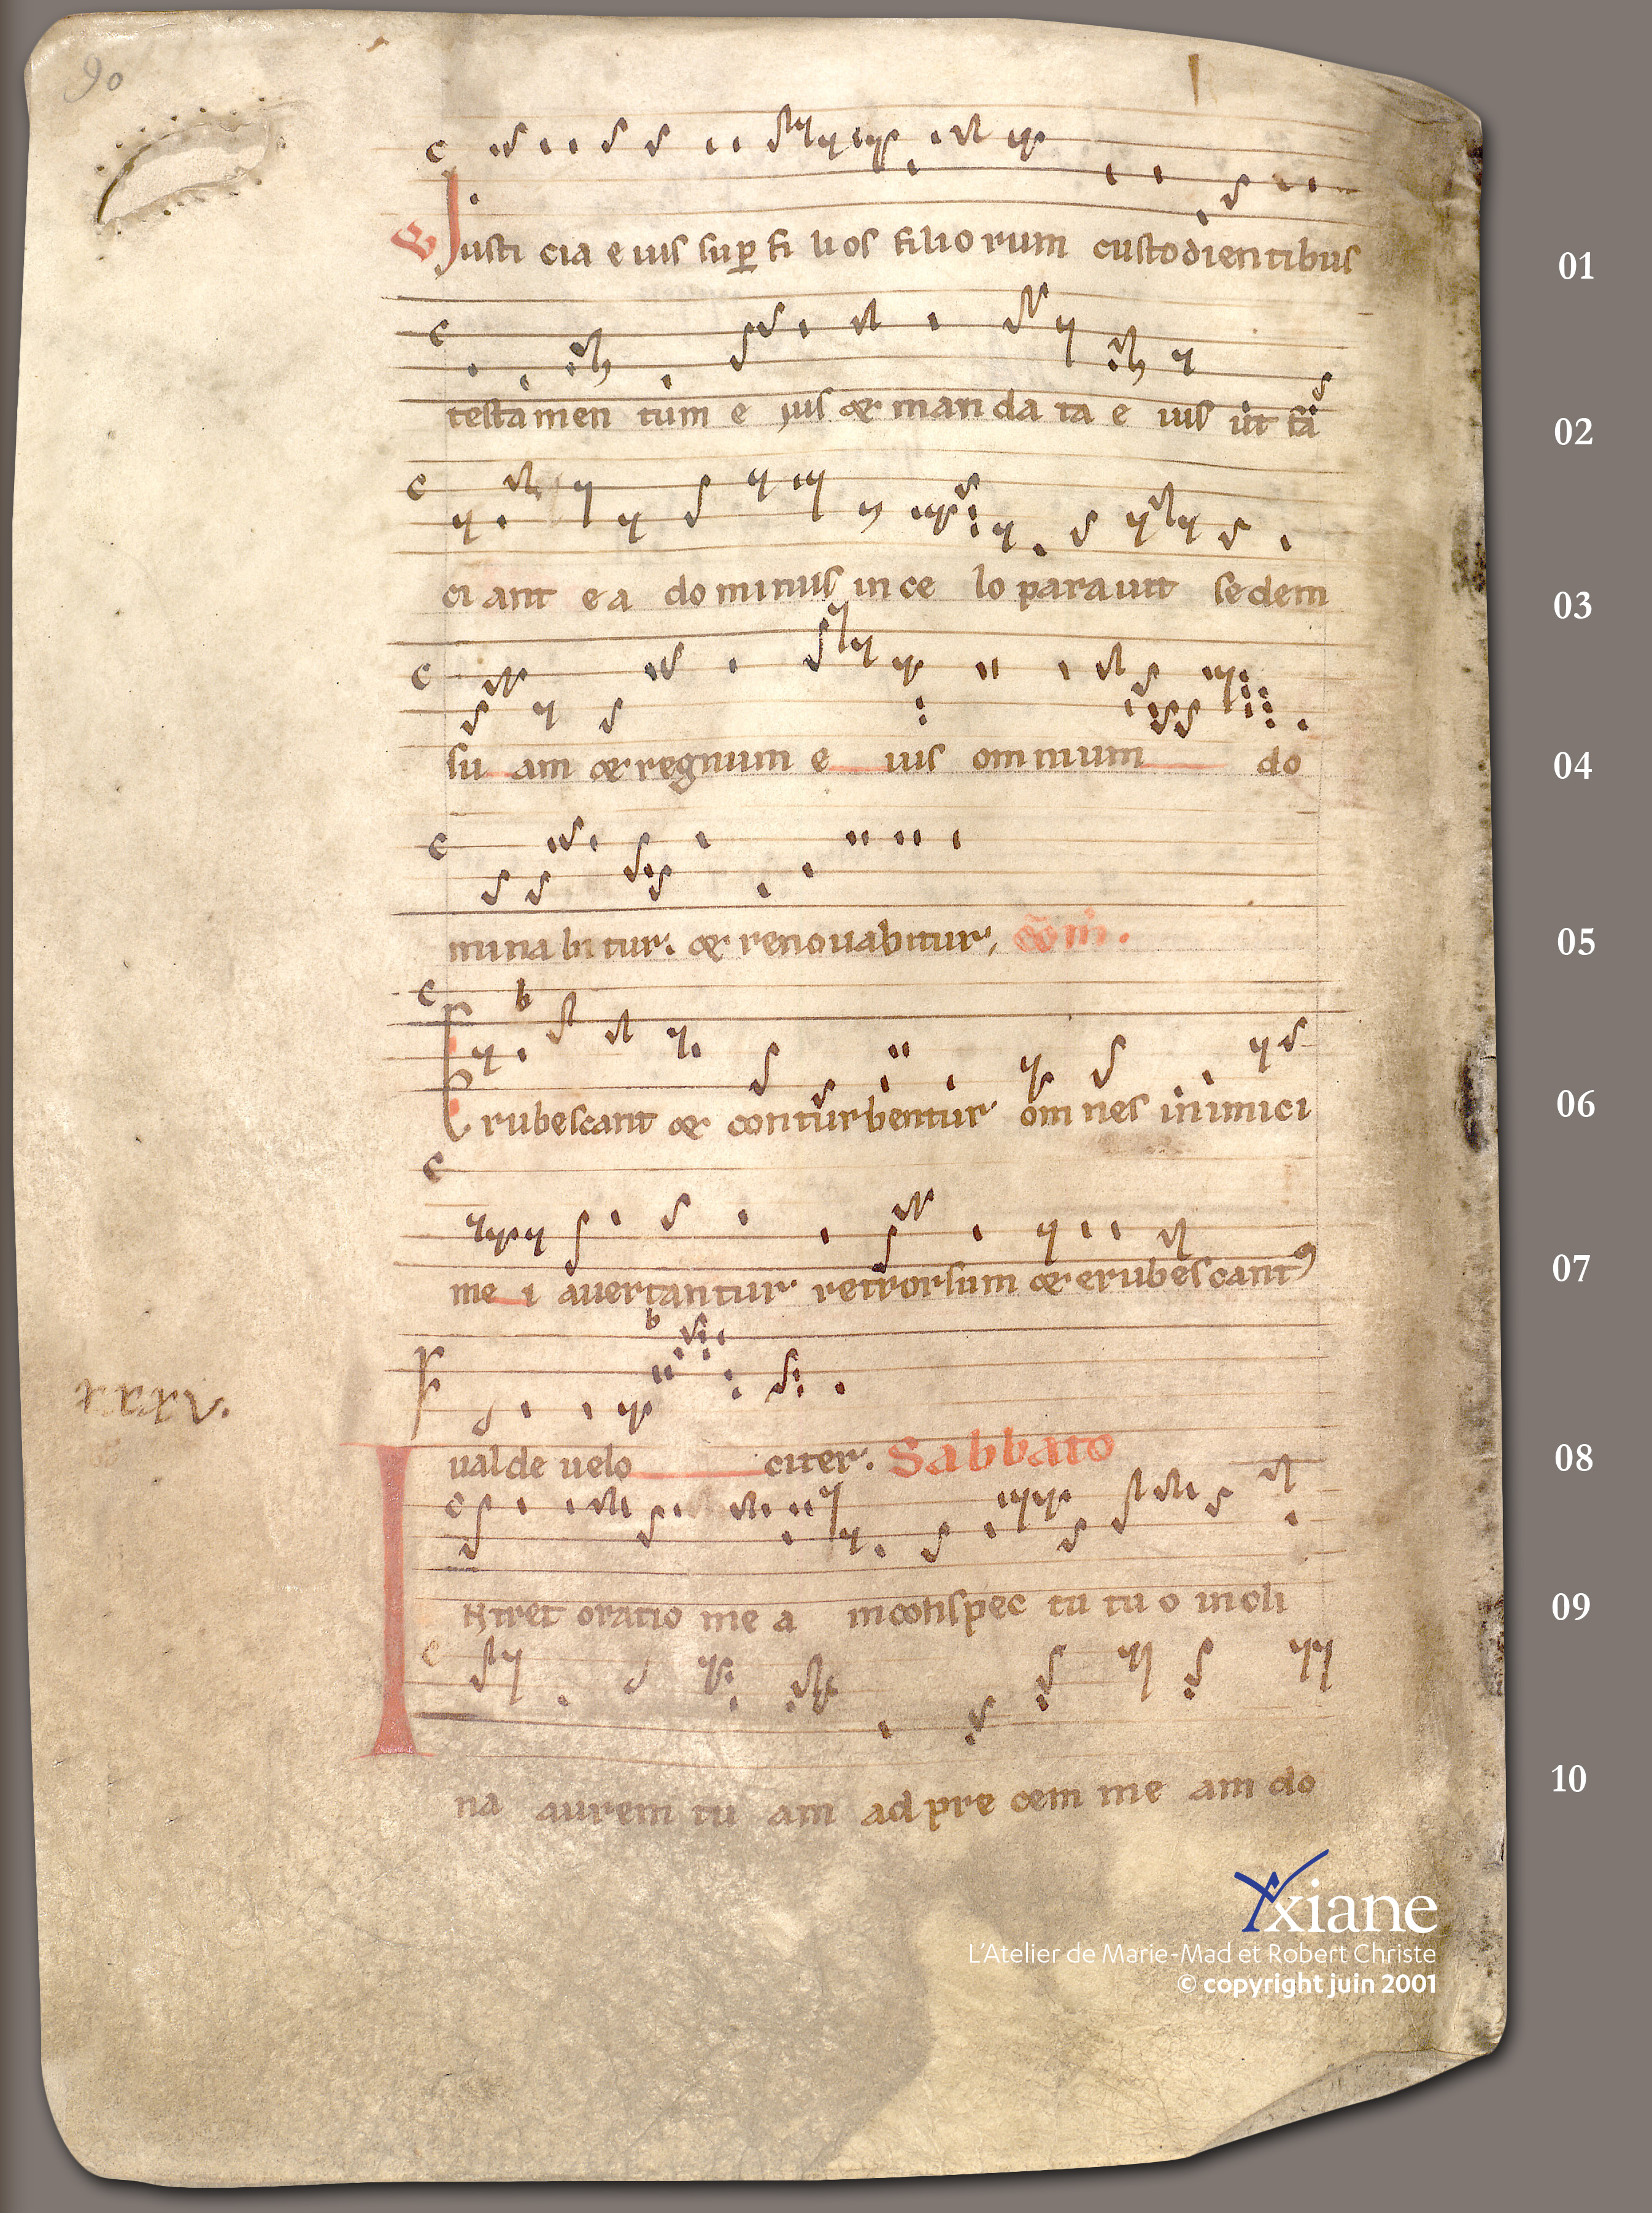 90
Iusti cia e ius sup fi li os filio rum custodientibus 01
testamen tum e ius & man da ta e ius ut fa 02
ci ant e a do minus in ce lo parauit sedem 03
su am & regnum e ius omnium do 04
mina bi tur. & renouabitur, com. 05
Erubescant & conturbentur om nes inimici 06
me i auertantur retrorsum & erubescant 07
xxxv.
ualde uelo citer. Sabbato 08
Intret oratio me a in conspec tu tu o incli 09
na aurem tu am ad pre cem me am do 10
Axiane
L'Atelier de Marie-Mad et Robert Christe
© copyright juin 2001